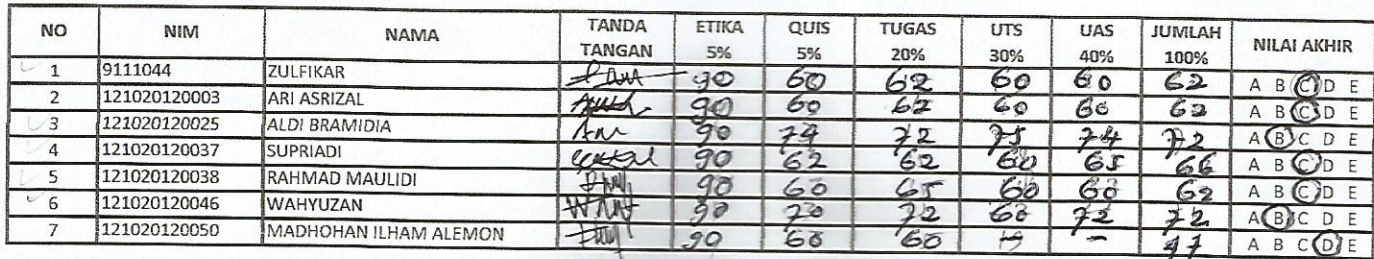 NO NIM NAMA TANDA TANGAN ETIKA 5% QUIS 5% TUGAS 20% UTS 30% UAS 40% JUMLAH 100% NILAI AKHIR
1 9111044 ZULFIKAR 90 60 62 60 60 62 A B C D E
2 121020120003 ARI ASRIZAL 90 60 62 60 60 62 A B C D E
3 121020120025 ALDI BRAMIDIA 90 74 72 75 74 72 A B C D E
4 121020120037 SUPRIADI 90 62 62 60 65 66 A B C D E
5 121020120038 RAHMAD MAULIDI 90 60 65 60 60 62 A B C D E
6 121020120046 WAHYUZAN 90 70 72 60 72 72 A B C D E
7 121020120050 MADHOHAN ILHAM ALEMON 90 60 60 - - A B C D E